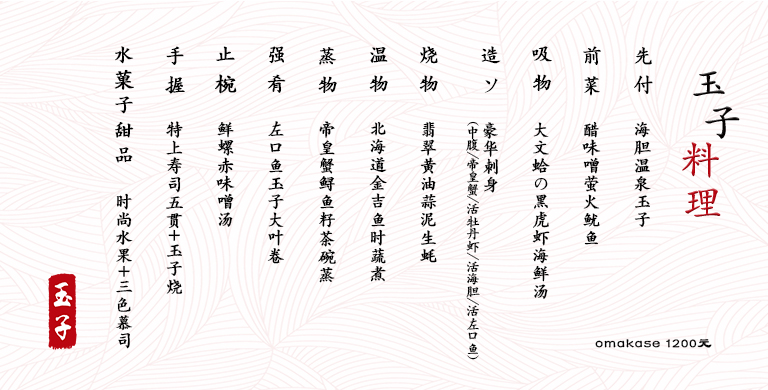 玉子
料理
先付 海胆温泉玉子
前菜 醋味噌萤火鱿鱼
吸物 大文蛤の黑虎虾海鲜汤
造ソ 豪华刺身
(中腹/帝皇蟹/活牡丹虾/活海胆/活左口鱼)
烧物 翡翠黄油蒜泥生蚝
温物 北海道金吉鱼时蔬煮
蒸物 帝皇蟹鲟鱼籽茶碗蒸
强肴 左口鱼玉子大叶卷
止椀 鲜螺赤味噌汤
手握 特上寿司五贯+玉子烧
水菓子甜品 时尚水果+三色慕司
omakase 1200元
玉子